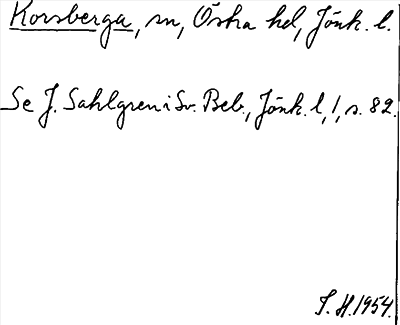 Korsberga, sn, Östra hd, Jönk. l.
Se J. Sahlgren i Sv. Beb., Jönk. l, 1, s. 82.
S. H. 1954.